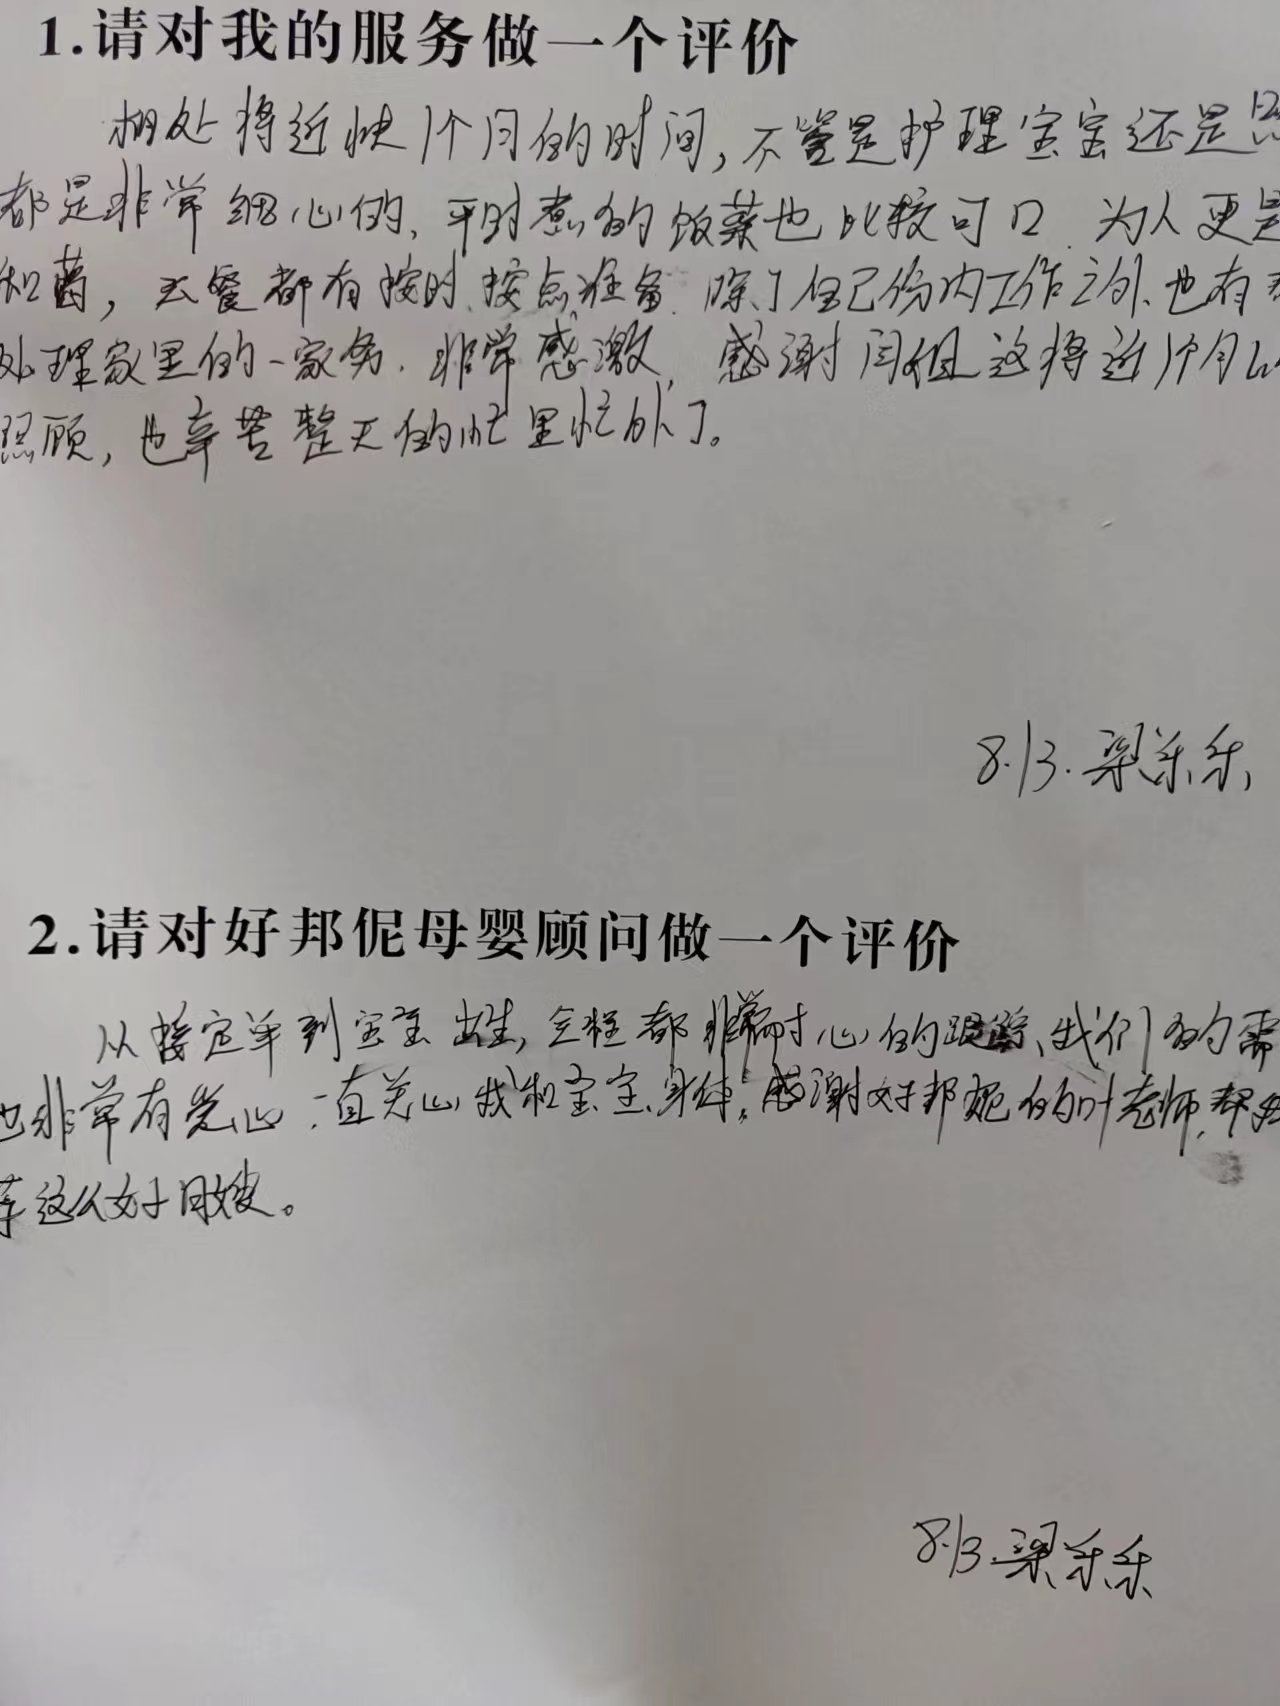 1.请对我的服务做一个评价
相处将近快1个月的时间,不管是护理宝宝还是
都是非常细心的,平时煮的饭菜也比较可口.为人更是
和蔼,三餐都有按时.按点准备.除了自己份内工作之外、也有
处理家里的一家务.非常感激,感谢闫姐这将近1个月的
照顾,也辛苦整天的忙里忙外了。
8.13.梁乐乐
2.请对好邦伲母婴顾问做一个评价
从接定单到宝宝出生,全程都非常耐心的跟踪、我们的需
也非常有耐心,一直关心我和宝宝身体;感谢好邦妮的叶老师,帮
荐这么好月嫂。
8.13.梁乐乐